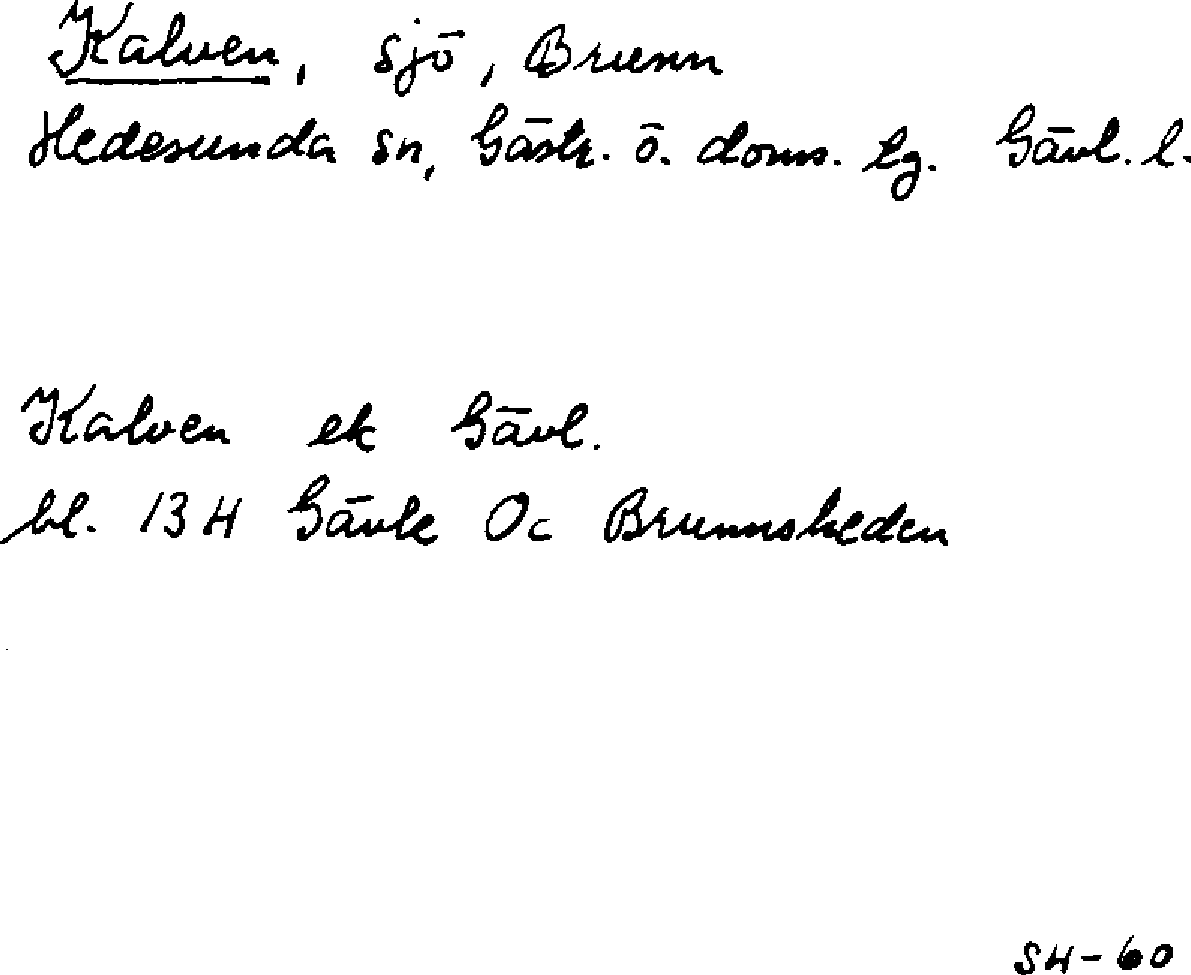 Kalven, sjö, Brunn
Hedesunda sn, Gästr. ö. doms. lg. Gävl. l.
Kalven ek Gävl.
bl. 13 H Gävle 0c Brunnsheden
SH-60